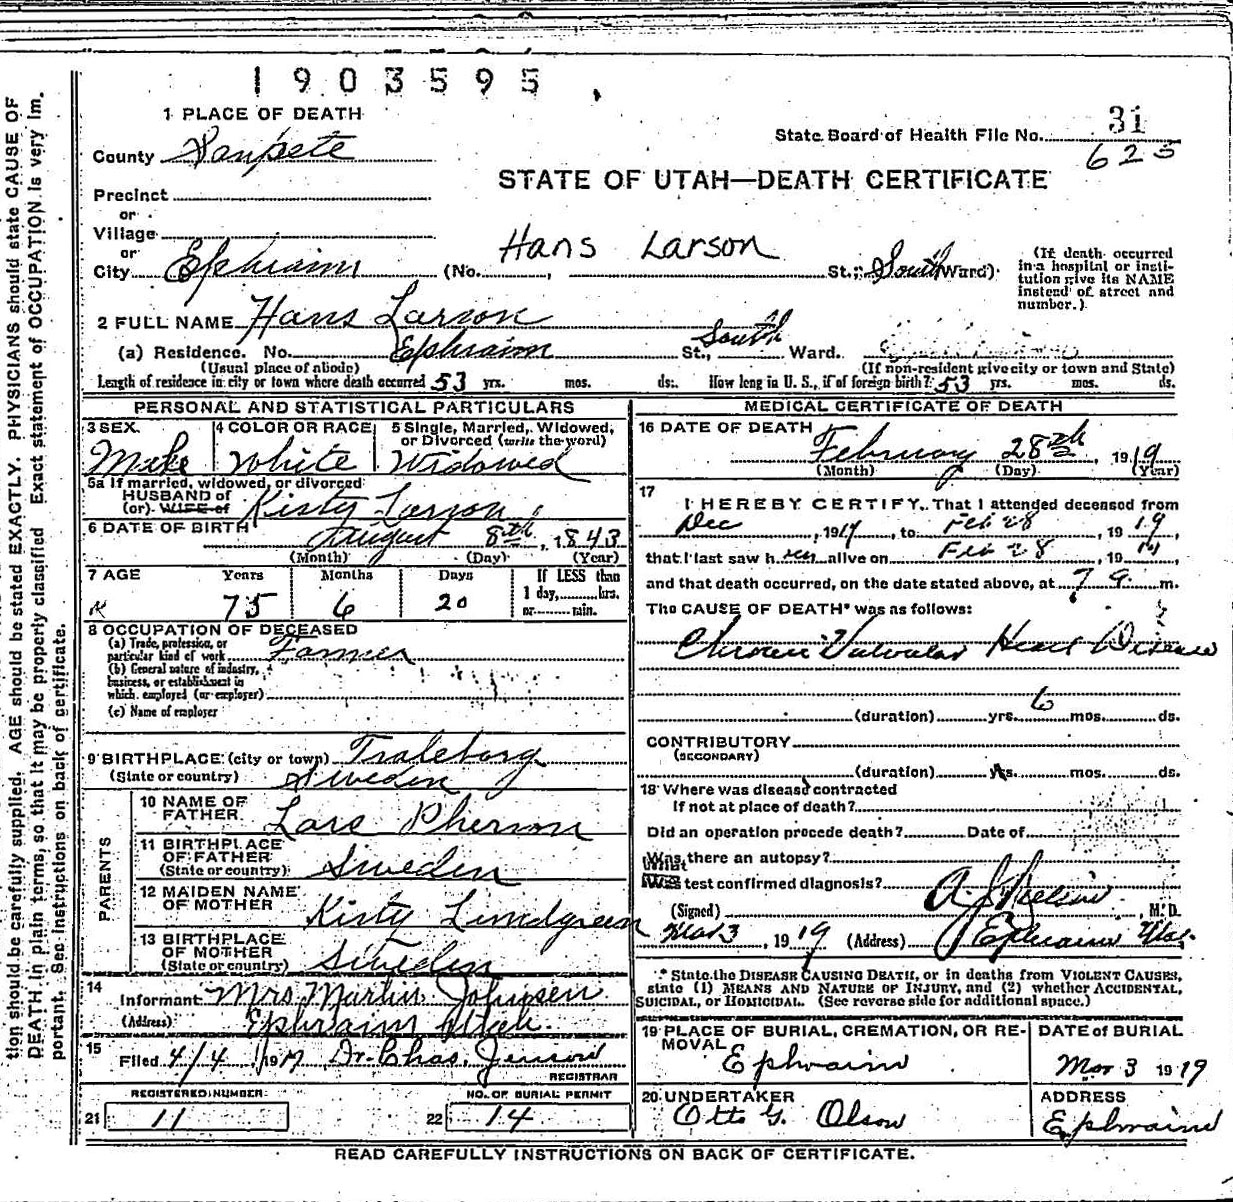 1903595
1 PLACE OF DEATH
State Board of Health File No. 31
625
County Sanpete
STATE OF UTAH—DEATH CERTIFICATE
Precinct
or
Village
or
Hans Larson
City Ephraim (No. , St.; South Ward)
(If death occurred in a hospital or institution give its NAME instead of street and number.)
2 FULL NAME Hans Larson
(a) Residence. No. Ephraim St., South Ward.
(Usual place of abode) (If non-resident give city or town and State)
Length of residence in city or town where death occurred 53 yrs. mos. ds. How long in U. S., if of foreign birth? 53 yrs. mos. ds.
PERSONAL AND STATISTICAL PARTICULARS
3 SEX 4 COLOR OR RACE 5 Single, Married, Widowed, or Divorced (write the word)
Male White Widowed
5a If married, widowed, or divorced
HUSBAND of
(or) WIFE of Kisty Larson
6 DATE OF BIRTH August 8th, 1843
(Month) (Day) (Year)
7 AGE Years Months Days If LESS than
1 day, hrs.
or min.
75 6 20
8 OCCUPATION OF DECEASED
(a) Trade, profession, or
particular kind of work Farmer
(b) General nature of industry,
business, or establishment in
which employed (or employer)
(c) Name of employer
9 BIRTHPLACE (city or town) Traleborg
(State or country) Sweden
PARENTS
10 NAME OF FATHER Lars Pherson
11 BIRTHPLACE OF FATHER (State or country) Sweden
12 MAIDEN NAME OF MOTHER Kisty Lundgreen
13 BIRTHPLACE OF MOTHER (State or country) Sweden
14 Informant Mrs Martin Johnsen
(Address) Ephraim Utah.
15 Filed 4/4 19 Dr. Chas. Jenson
REGISTRAR
REGISTERED NUMBER NO. OF BURIAL PERMIT
21 11 22 14
MEDICAL CERTIFICATE OF DEATH
16 DATE OF DEATH February 28th, 1919
(Month) (Day) (Year)
17
I HEREBY CERTIFY, That I attended deceased from
Dec , 191 , to Feb 28 , 1919,
that I last saw h alive on Feb 28 , 19
and that death occurred, on the date stated above, at 7 a. m.
The CAUSE OF DEATH* was as follows:
Chronic Valvular Heart Disease
(duration) yrs. 6 mos. ds.
CONTRIBUTORY
(SECONDARY)
(duration) yrs. mos. ds.
18 Where was disease contracted
if not at place of death?
Did an operation precede death? Date of
Was there an autopsy?
What test confirmed diagnosis?
(Signed) A. J. Nielson , M. D.
Mar 3, 1919 (Address) Ephraim Utah.
* State the DISEASE CAUSING DEATH, or in deaths from VIOLENT CAUSES,
state (1) MEANS AND NATURE OF INJURY, and (2) whether ACCIDENTAL,
SUICIDAL, or HOMICIDAL. (See reverse side for additional space.)
19 PLACE OF BURIAL, CREMATION, OR REMOVAL DATE of BURIAL
Ephraim Mar 3 1919
20 UNDERTAKER ADDRESS
Otto G. Olson Ephraim
READ CAREFULLY INSTRUCTIONS ON BACK OF CERTIFICATE.
tion should be carefully supplied. AGE should be stated EXACTLY. PHYSICIANS should state CAUSE OF
DEATH in plain terms, so that it may be properly classified. Exact statement of OCCUPATION is very im-
portant. See instructions on back of certificate.